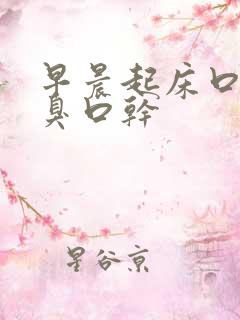 早晨起床口
臭口幹
星谷京